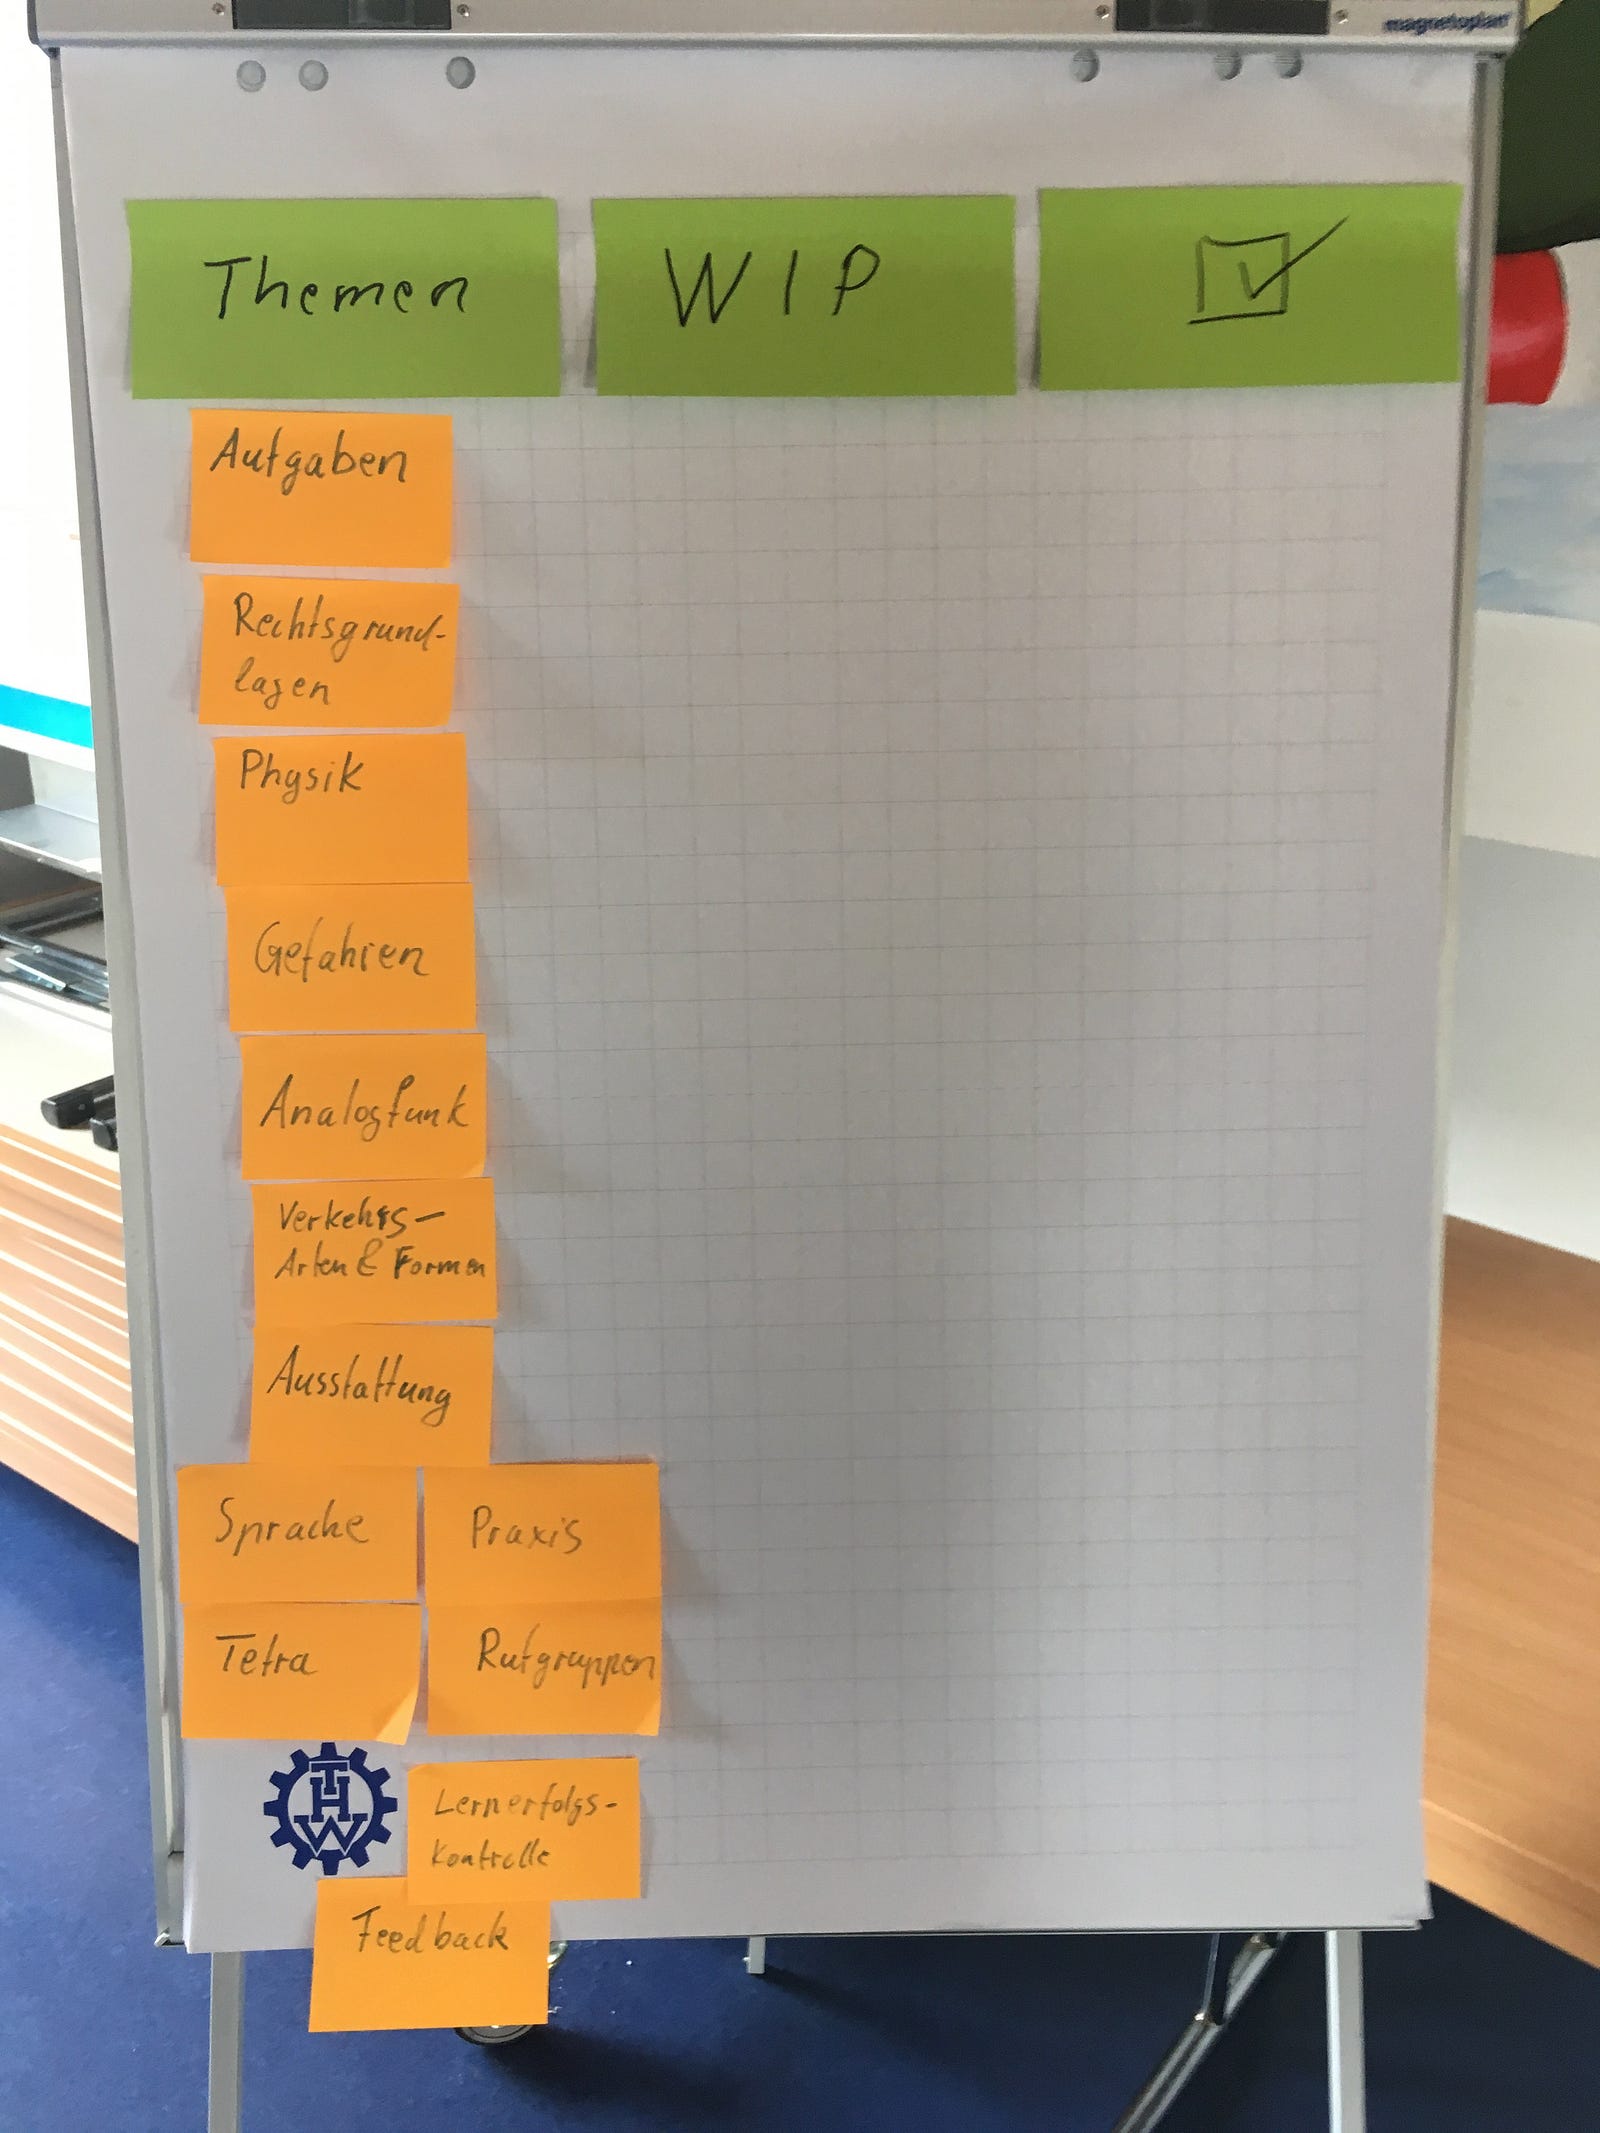 magnetoplan
Themen
WIP
Aufgaben
Rechtsgrund-
lagen
Physik
Gefahren
Analogfunk
Verkehrs-
Arten & Formen
Ausstattung
Sprache
Praxis
Tetra
Rufgruppen
THW
Lernerfolgs-
kontrolle
Feedback